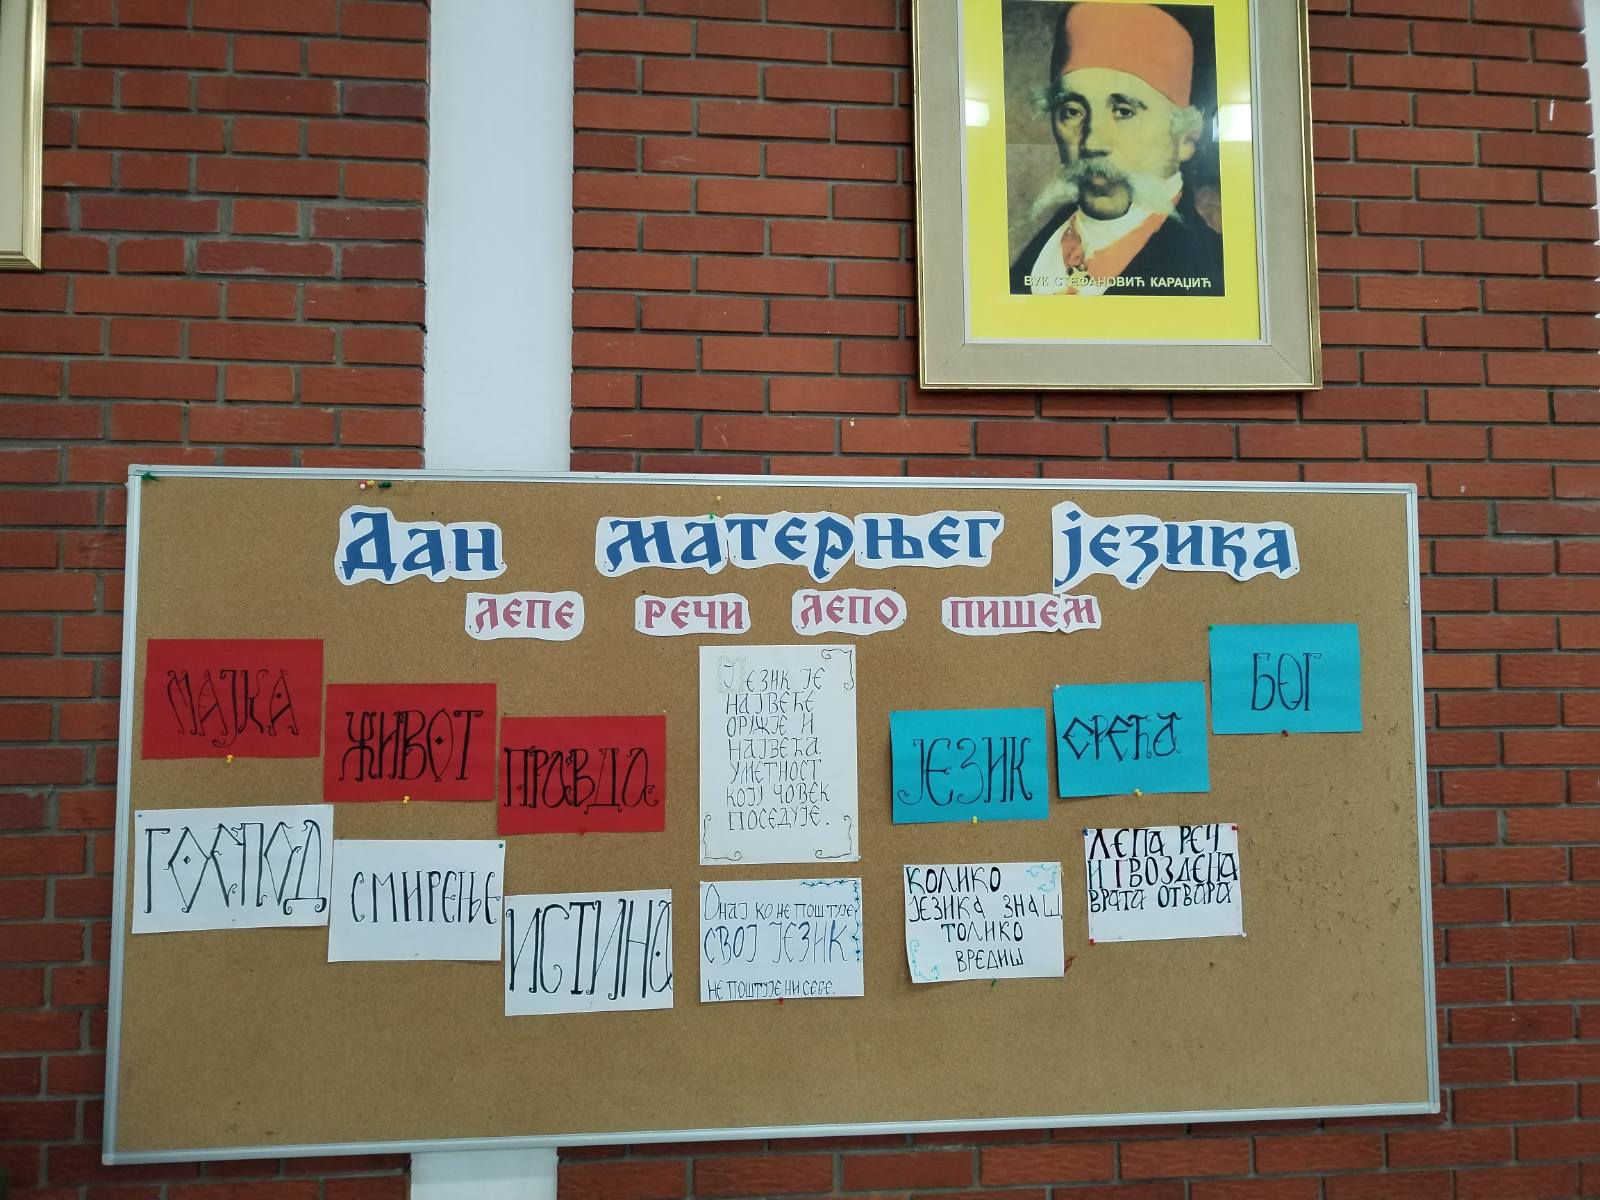 ВУК СТЕФАНОВИЋ КАРАЏИЋ
Дан матерњег језика
лепе речи лепо пишем
МАЈКА
ЖИВОТ
ПРАВДА
ЈЕЗИК ЈЕ
НАЈВЕЋЕ
ОРУЖЈЕ И
НАЈВЕЋА
УМЕТНОСТ
КОЈУ ЧОВЕК
ПОСЕДУЈЕ.
ЈЕЗИК
СРЕЋА
БОГ
ГОСПОД
СМИРЕЊЕ
ИСТИНА
ОНАЈ КО НЕ ПОШТУЈЕ
СВОЈ ЈЕЗИК
НЕ ПОШТУЈЕ НИ СЕБЕ.
КОЛИКО
ЈЕЗИКА ЗНАШ
ТОЛИКО
ВРЕДИШ
ЛЕПА РЕЧ
И ГВОЗДЕНА
ВРАТА ОТВАРА